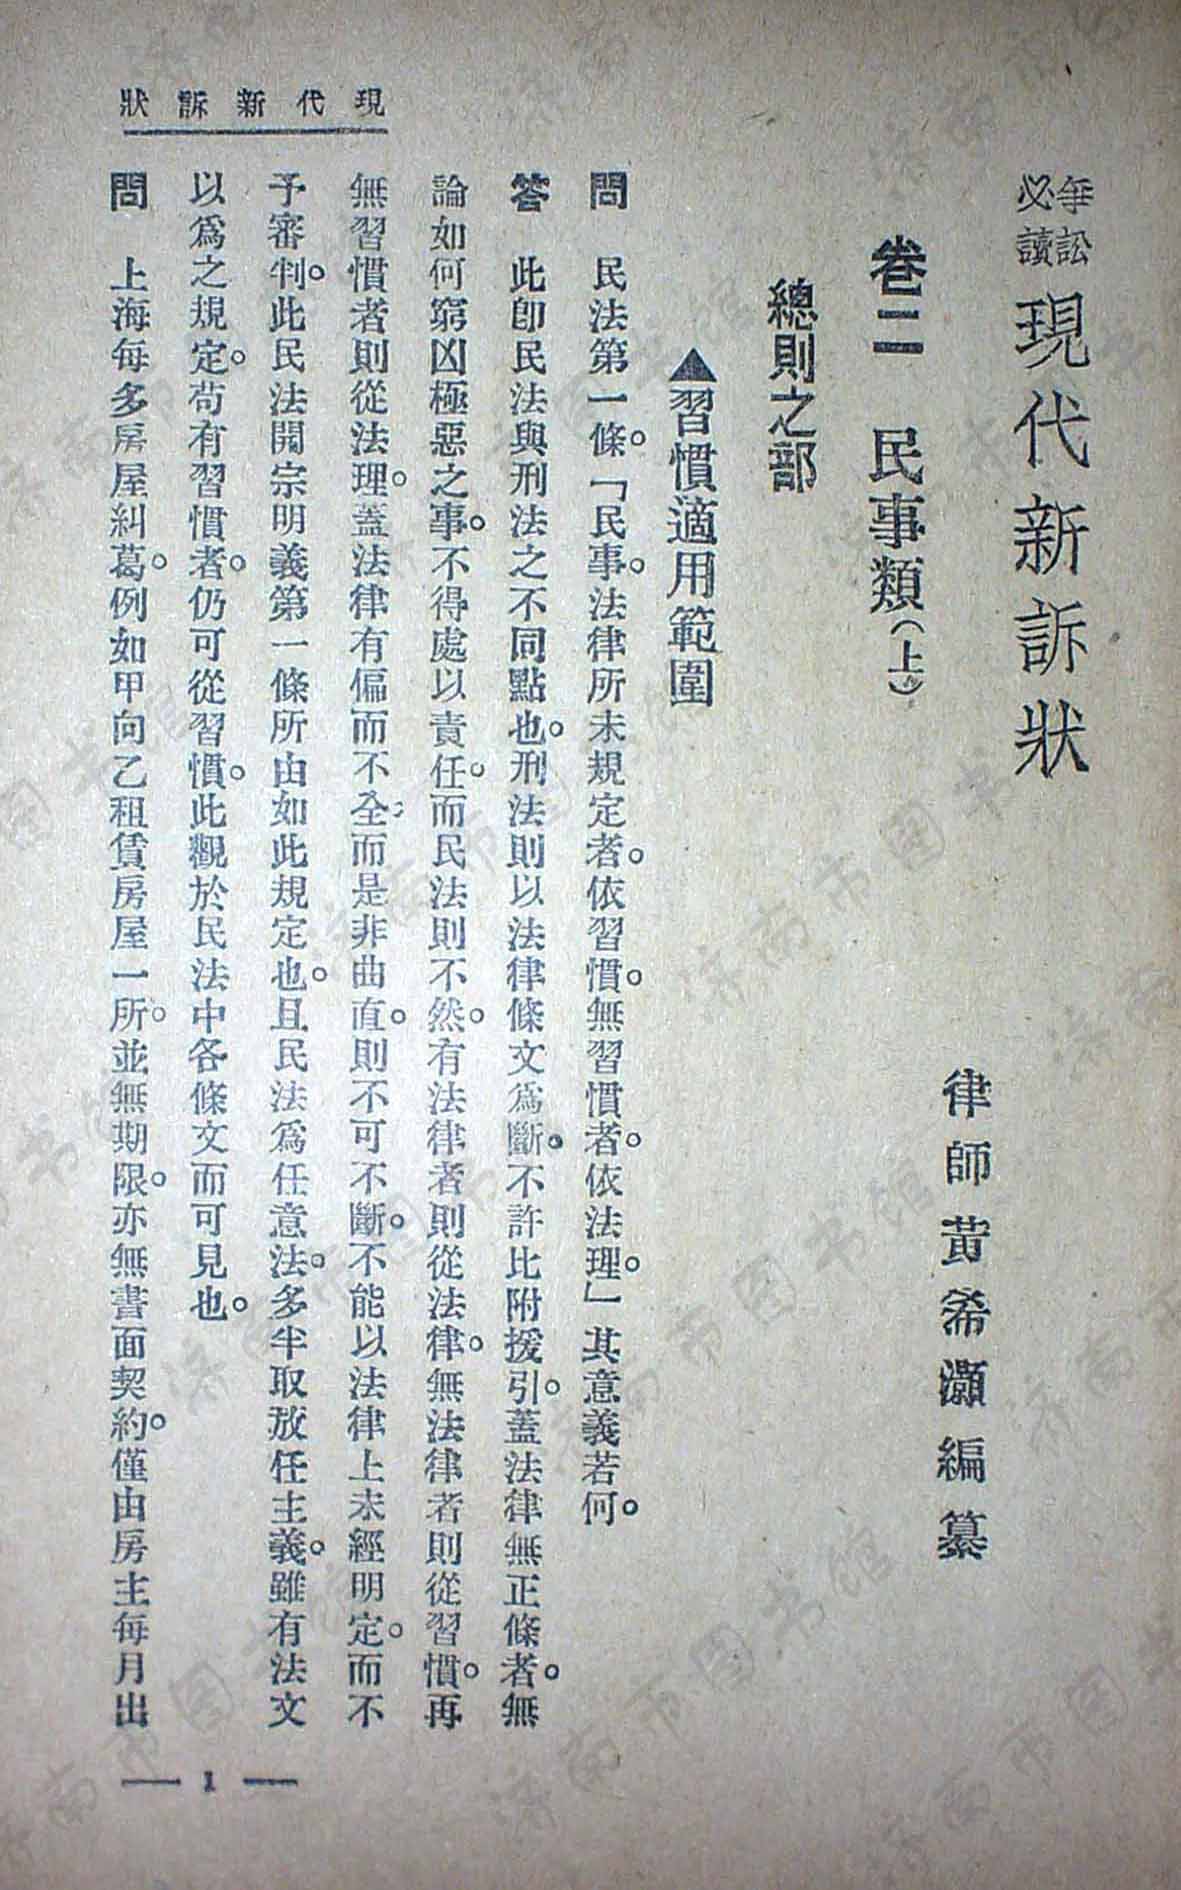 爭訟必讀 現代新訴狀
律師黃希灝編纂
卷二 民事類（上）
總則之部
▲習慣適用範圍
問 民法第一條。「民事。法律所未規定者。依習慣。無習慣者。依法理。」其意義若何。
答 此卽民法與刑法之不同點也。刑法則以法律條文爲斷。不許比附援引。蓋法律無正條者。無
論如何窮凶極惡之事。不得處以責任。而民法則不然。有法律者則從法律。無法律者則從習慣。再
無習慣者則從法理。蓋法律有偏而不全。而是非曲直。則不可不斷。不能以法律上未經明定。而不
予審判。此民法開宗明義第一條所由如此規定也。且民法爲任意法。多半取放任主義。雖有法文
以爲之規定。苟有習慣者。仍可從習慣。此觀於民法中各條文而可見也。
問 上海每多房屋糾葛。例如甲向乙租賃房屋一所。並無期限。亦無書面契約。僅由房主每月出
現代新訴狀
— 1 —
济南市图书馆